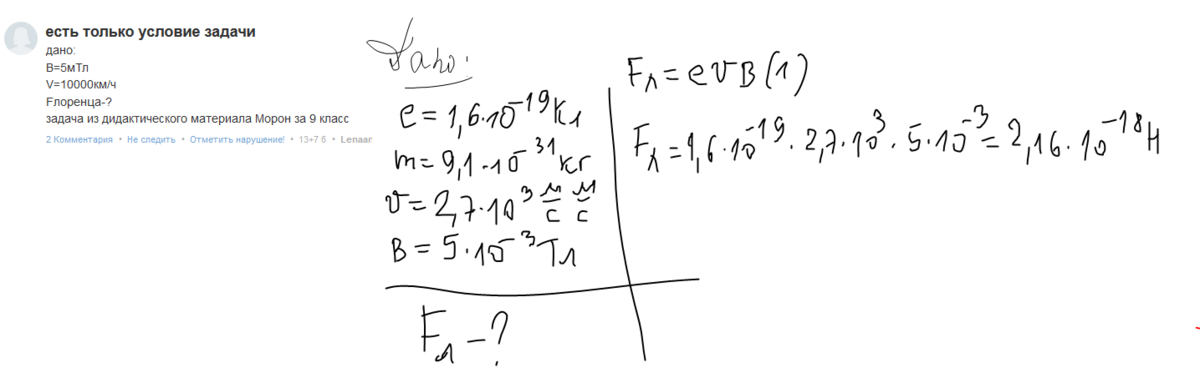 есть только условие задачи
дано:
B=5мТл
V=10000км/ч
Fлоренца-?
задача из дидактического материала Морон за 9 класс
2 Комментария • Не следить • Отметить нарушение! • 13+7 б • Lenaar
Дано:
e = 1,6·10⁻¹⁹Кл
m = 9,1·10⁻³¹кг
v = 2,7·10³ м/с м/с
B = 5·10⁻³Тл
Fл - ?
Fл = evB (1)
Fл = 1,6·10⁻¹⁹ · 2,7·10³ · 5·10⁻³ = 2,16·10⁻¹⁸ Н